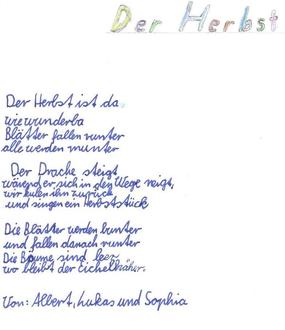 Der Herbst
Der Herbst ist da,
wie wunderba
Blätter fallen runter
alle werden munter
Der Drache steigt
wärend er sich in den Wege neigt,
wir holen ihn zurück
und singen ein Herbststück
Die Blätter werden bunter
und fallen danach runter
Die Bäume sind leer,
wo bleibt der eichelhäher.
Von: Albert, Lukas und Sophia